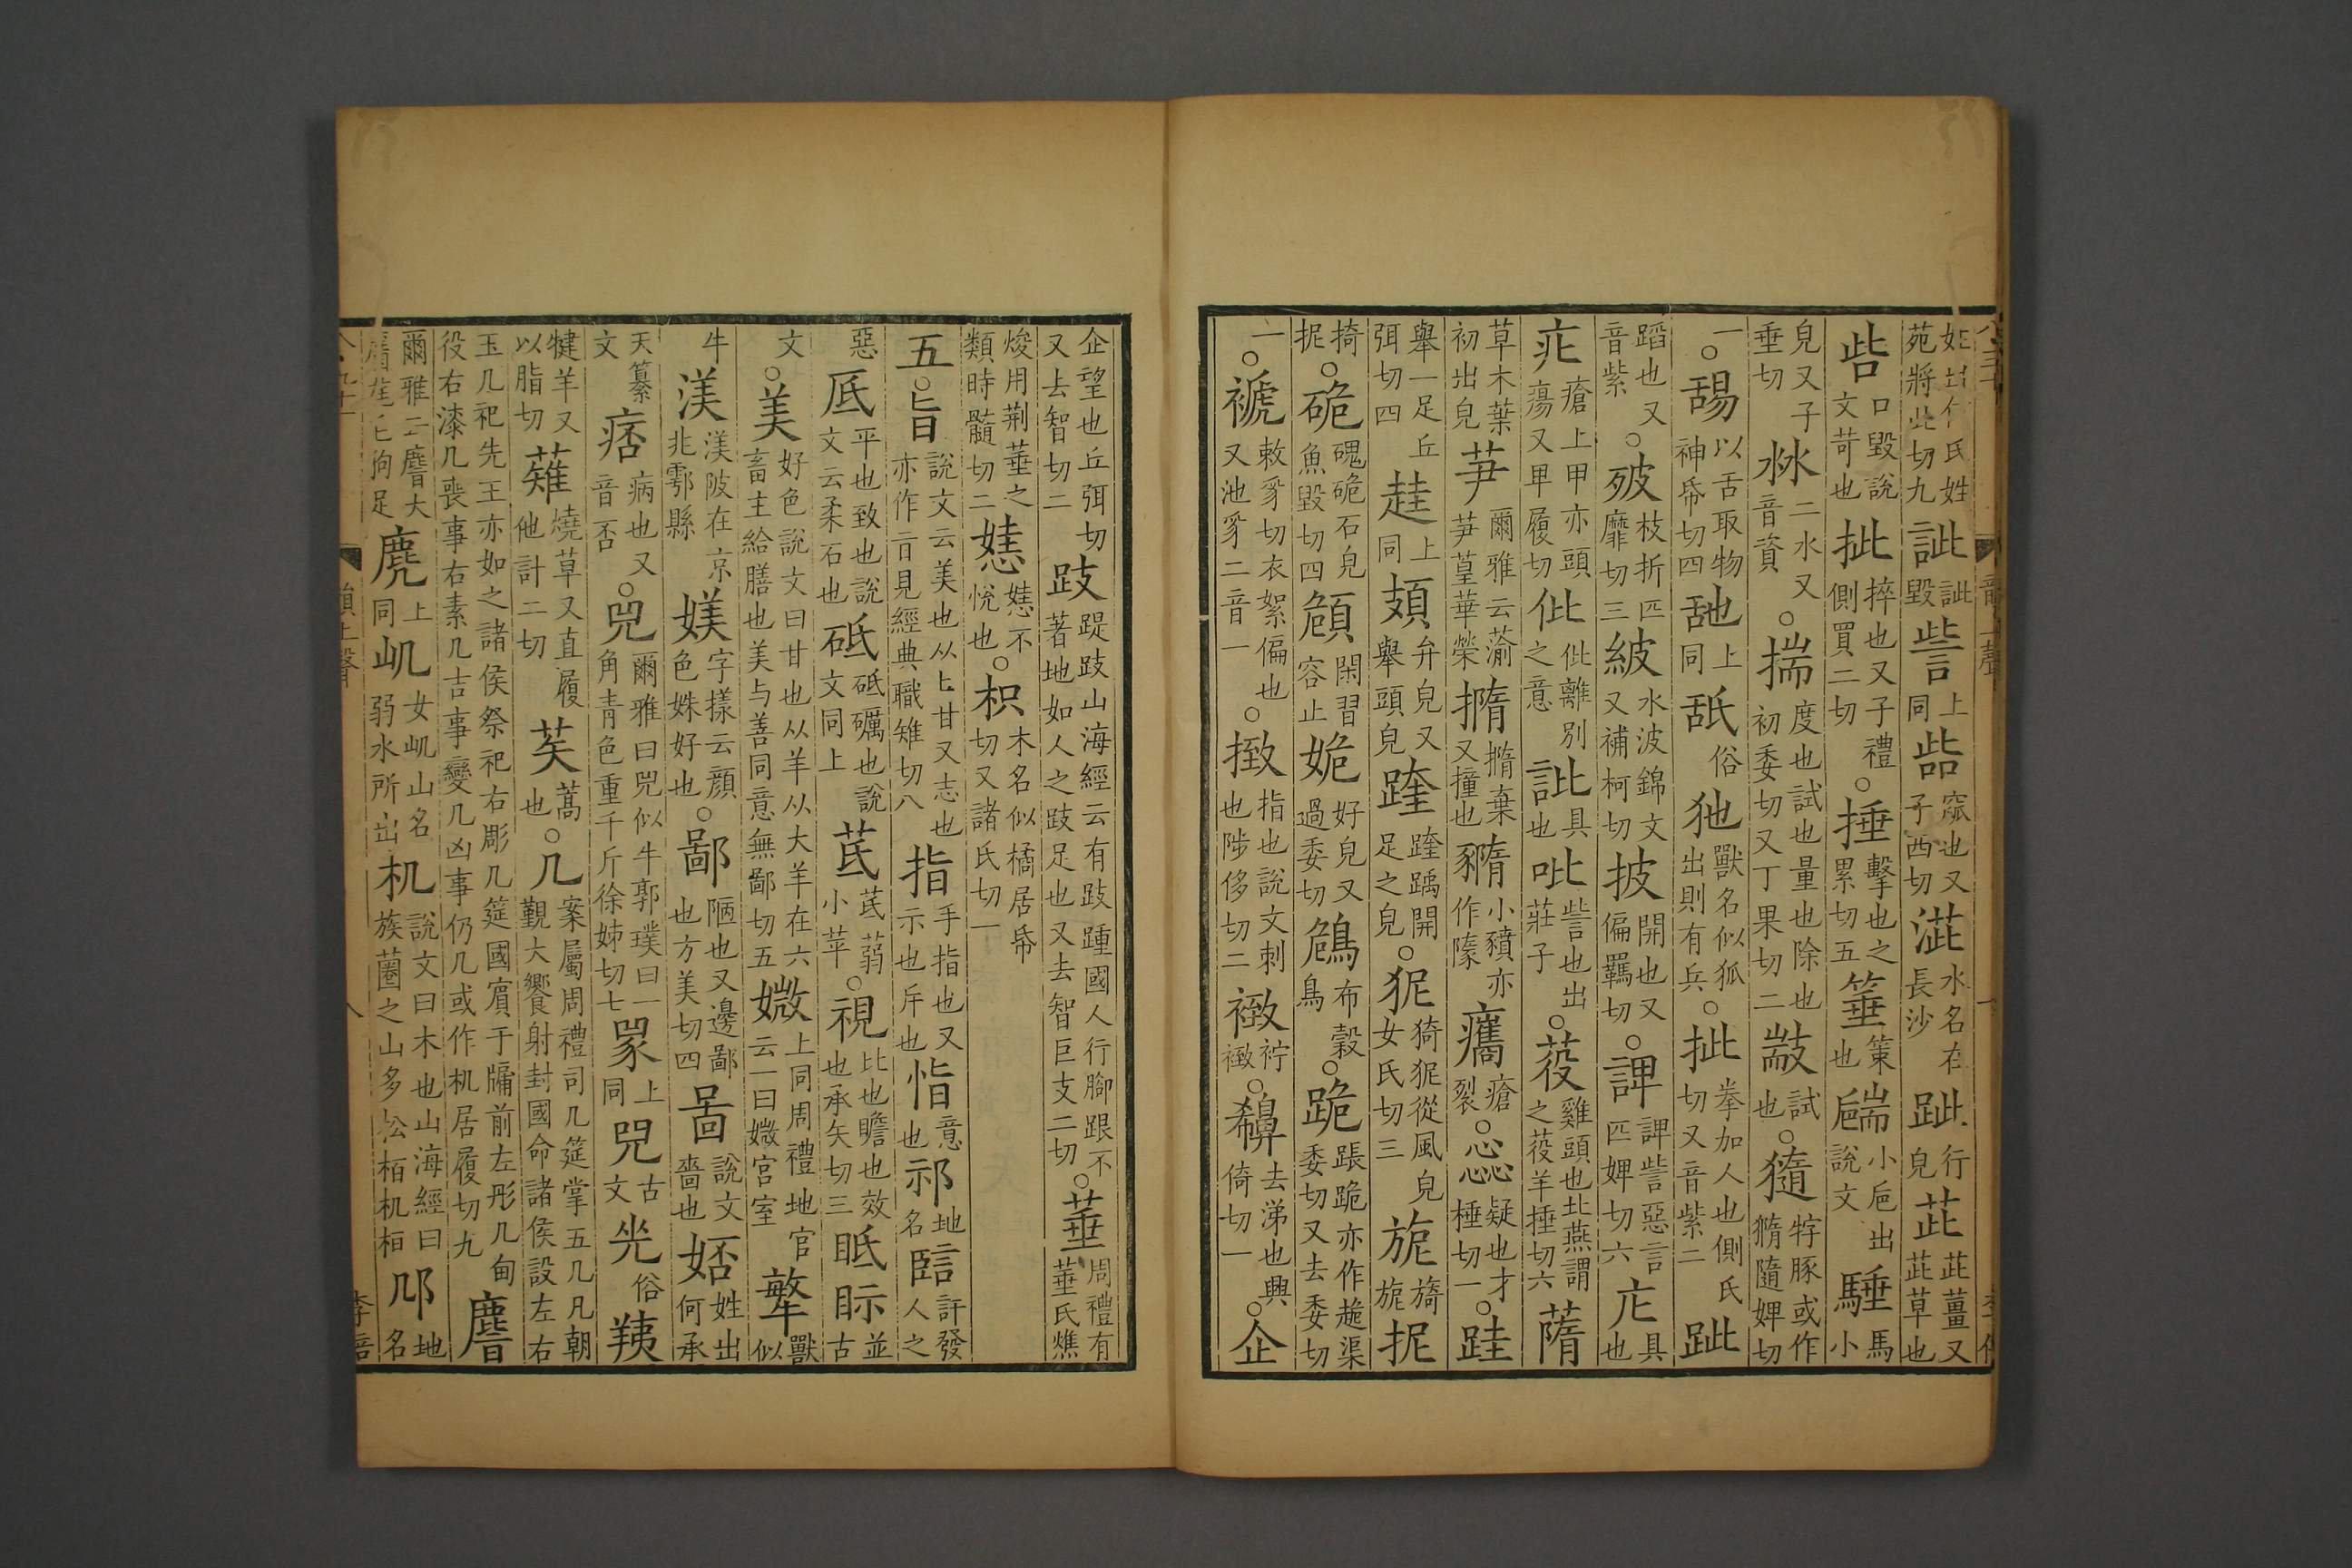 姓出何氏姓苑將此切九訿訿毀訾上同啙窳也又子西切㴲水名在長沙跐行皃茈茈薑又茈草也
呰口毀說文苛也㧗捽也又子禮側買二切○捶擊也之累切五箠策也小巵出說文䮔馬小
皃又子垂切沝二水又音資○揣度也試也量也除也初委切又丁果切二試也○牸豚或作隨婢切
一○舓以舌取物神帋切四上同舐俗狏獸名似狐出則有兵○㧗拳加人也側氏切又音紫二跐
蹈也又音紫○枝折匹靡切三紴水波錦文又補柯切披開也又偏羈切○諀諀訾惡言匹婢切六庀具也
疕瘡上甲亦頭瘍又𤰞履切仳仳離別之意具也吡訾也出莊子○䓈雞頭也北燕謂之䓈羊捶切六
草木葉初出皃芛爾雅云蕍芛葟華榮撱撱棄又撞也小豶亦作瘡裂○惢疑也才棰切一○跬
舉一足丘弭切四上同頍弁皃又舉頭皃踽開足之皃○狔猗狔從風皃女氏切三旎旖旎抳
掎抳○硊磈硊石皃魚毀切四頠閑習容止姽好皃又過委切布穀鳥○跪跪亦作渠委切又去委切
一○褫敕豸切衣絮偏也又池豸二音一○㨖指也說文刺也陟侈切二紵○去涕也興倚切一○企
企望也丘弭切又去智切二跂踶跂山海經云有跂踵國人行腳跟不著地如人之跂足也又去智巨支二切○菙周禮有菙氏燋
焌用荆菙之類時髓切二不悅也○枳木名似橘居帋切又諸氏切一
五○旨說文云美也从匕甘又志也亦作㫖見經典職雉切八指手指也又示也斥也恉意也祁地名訐發人之
惡厎平也致也說文云柔石也砥砥礪也說文同上茋茋蒻小苹○視比也瞻也效也承矢切三眡眎並古
文○美好色說文曰甘也从羊从大羊在六畜主給膳也美与善同意無鄙切五媺上同周禮地官云一曰媺宮室獸似
牛渼渼陂在京兆鄠縣媄字樣云顏色姝好也○鄙陋也又邊鄙也方美切四啚說文嗇也姓出何承
天纂文痞病也又音否○兕爾雅曰兕似牛郭璞曰一角青色重千斤徐姊切七上同古文俗羠
犍羊又以脂切薙燒草又直履他計二切蒿也○几案屬周禮司几筵掌五几凡朝覲大饗射封國命諸侯設左右
玉几祀先王亦如之諸侯祭祀右彫几筵國賓于牖前左彤几甸役右漆几喪事右素几吉事變几凶事仍几或作机居履切九麔
爾雅云麔大麚旄毛狗足麂上同女山名弱水所出机說文曰木也山海經曰族蓲之山多松栢机桓地名